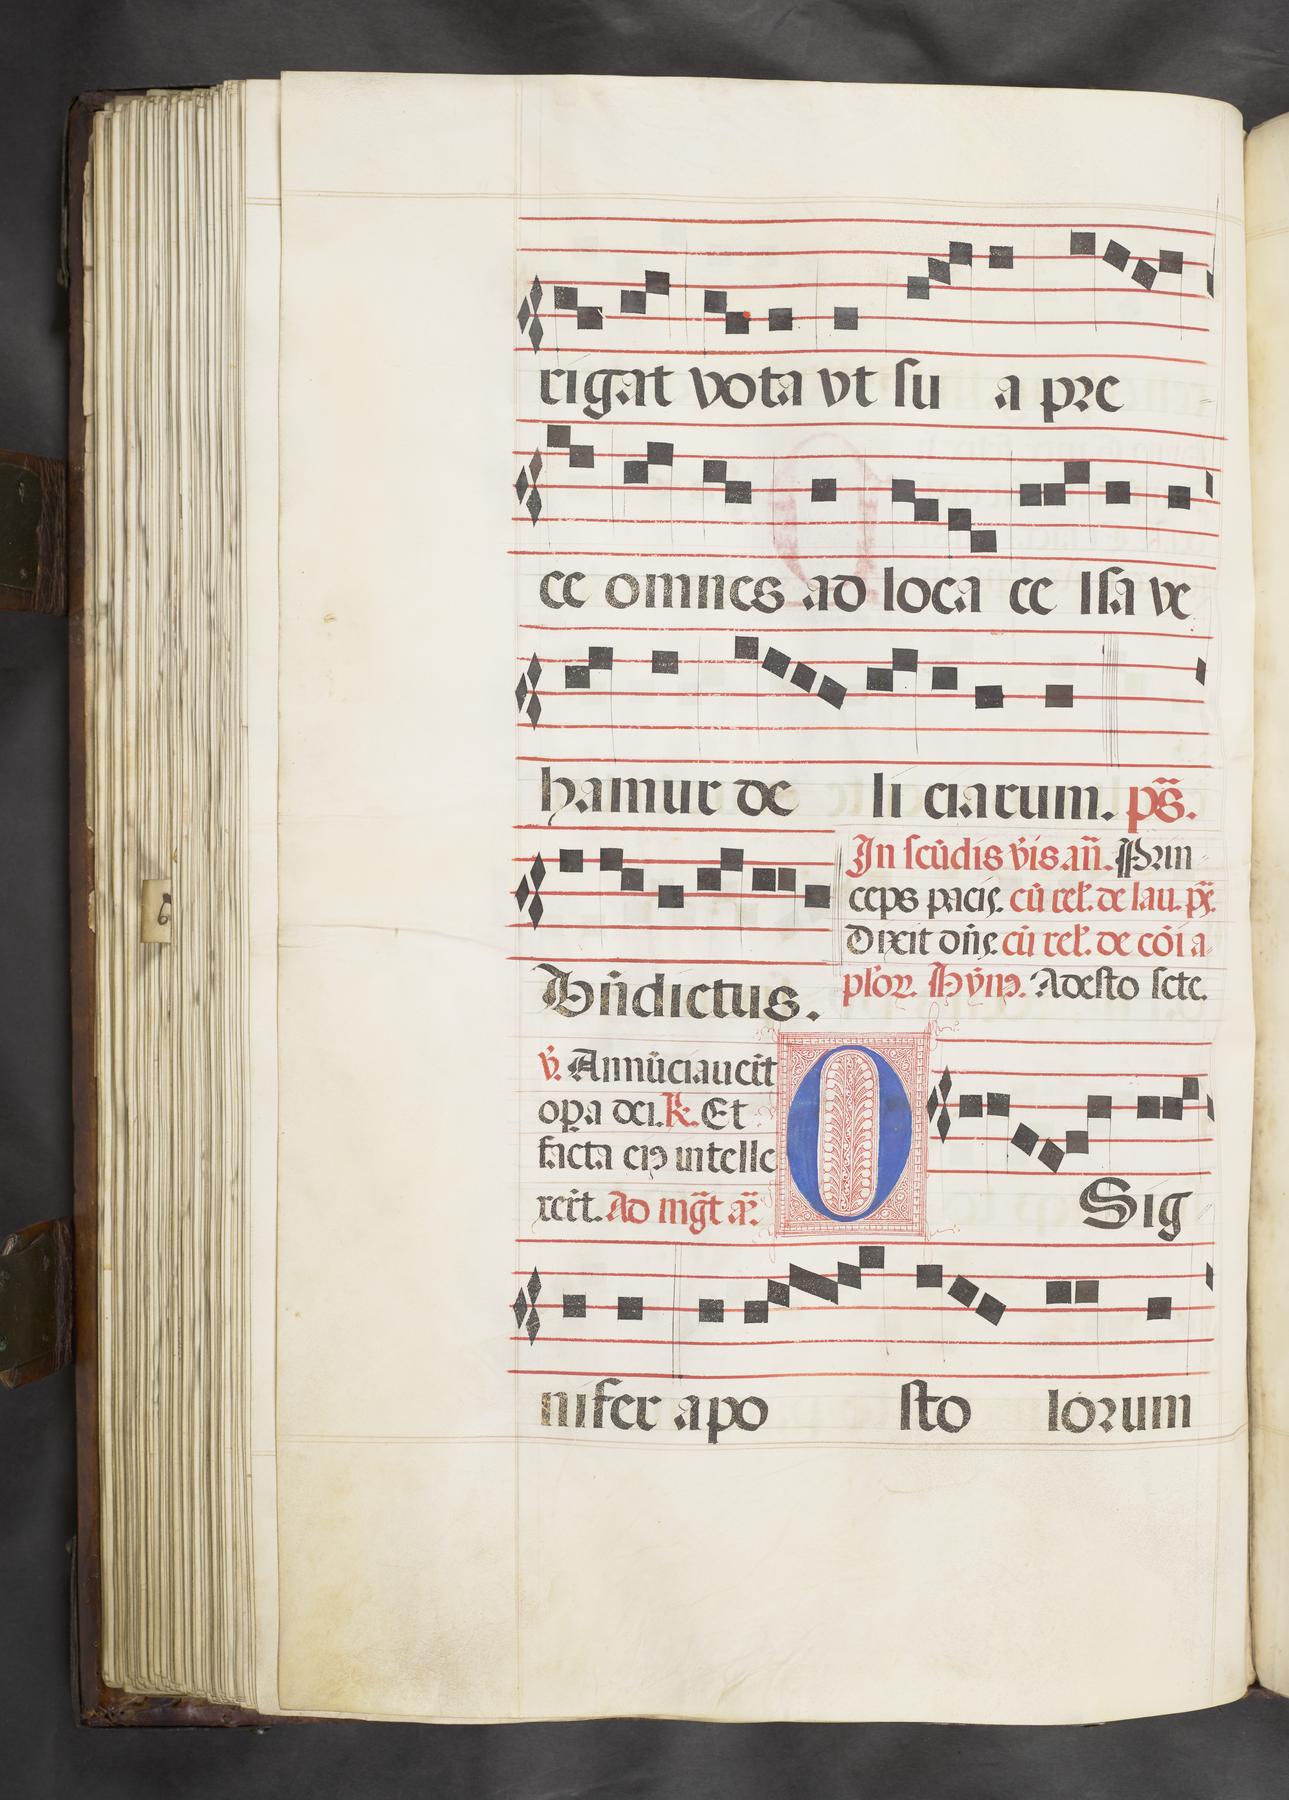 rigat vota vt su a pre
ce omnes ad loca ce lsa ve
hamur de li ciarum. ps̃.
In scd̃is vis añ. Prin
ceps pacis. cũ rel. de lau. ps̃.
Dixit dñs. cũ rel. de cõi a
plor. Hỹm. Adesto scte.
Bñdictus.
v̄. Annũciauer̃t
opa dei. R. Et
facta eiꝰ intelle
xer̃t. Ad mg̃t añ.
O Sig
nifer apo sto lorum
6